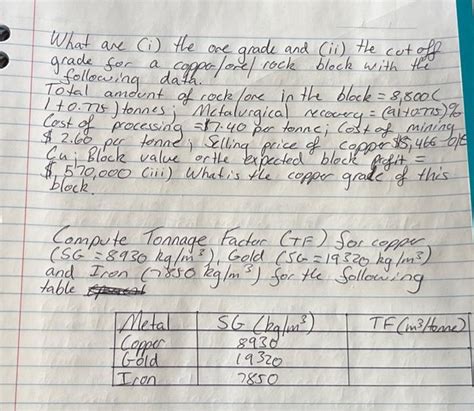 What are (i) the ore grade and (ii) the cut off
grade for a copper/ore/ rock block with the
following data.
Total amount of rock/ore in the block = 8,800(
1+0.775) tonnes; Metalurgical recovery = (91+0.775)%
Cost of processing = $7.40 per tonne; Cost of mining
$2.60 per tonne; Selling price of copper $5,466
Cu; Block value or the expected block profit =
$,570,000 (iii) What is the copper grade of this
block.
Compute Tonnage Factor (TF) for copper
(SG = 8930 kg/m³), Gold (SG = 19320 kg/m³)
and Iron (7850 kg/m³) for the following
table
Metal SG (kg/m³) TF (m³/tonne)
Copper 8930
Gold 19320
Iron 7850